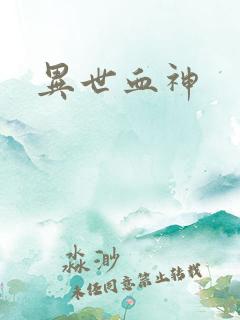 異世血神
淼渺
未经同意禁止转载